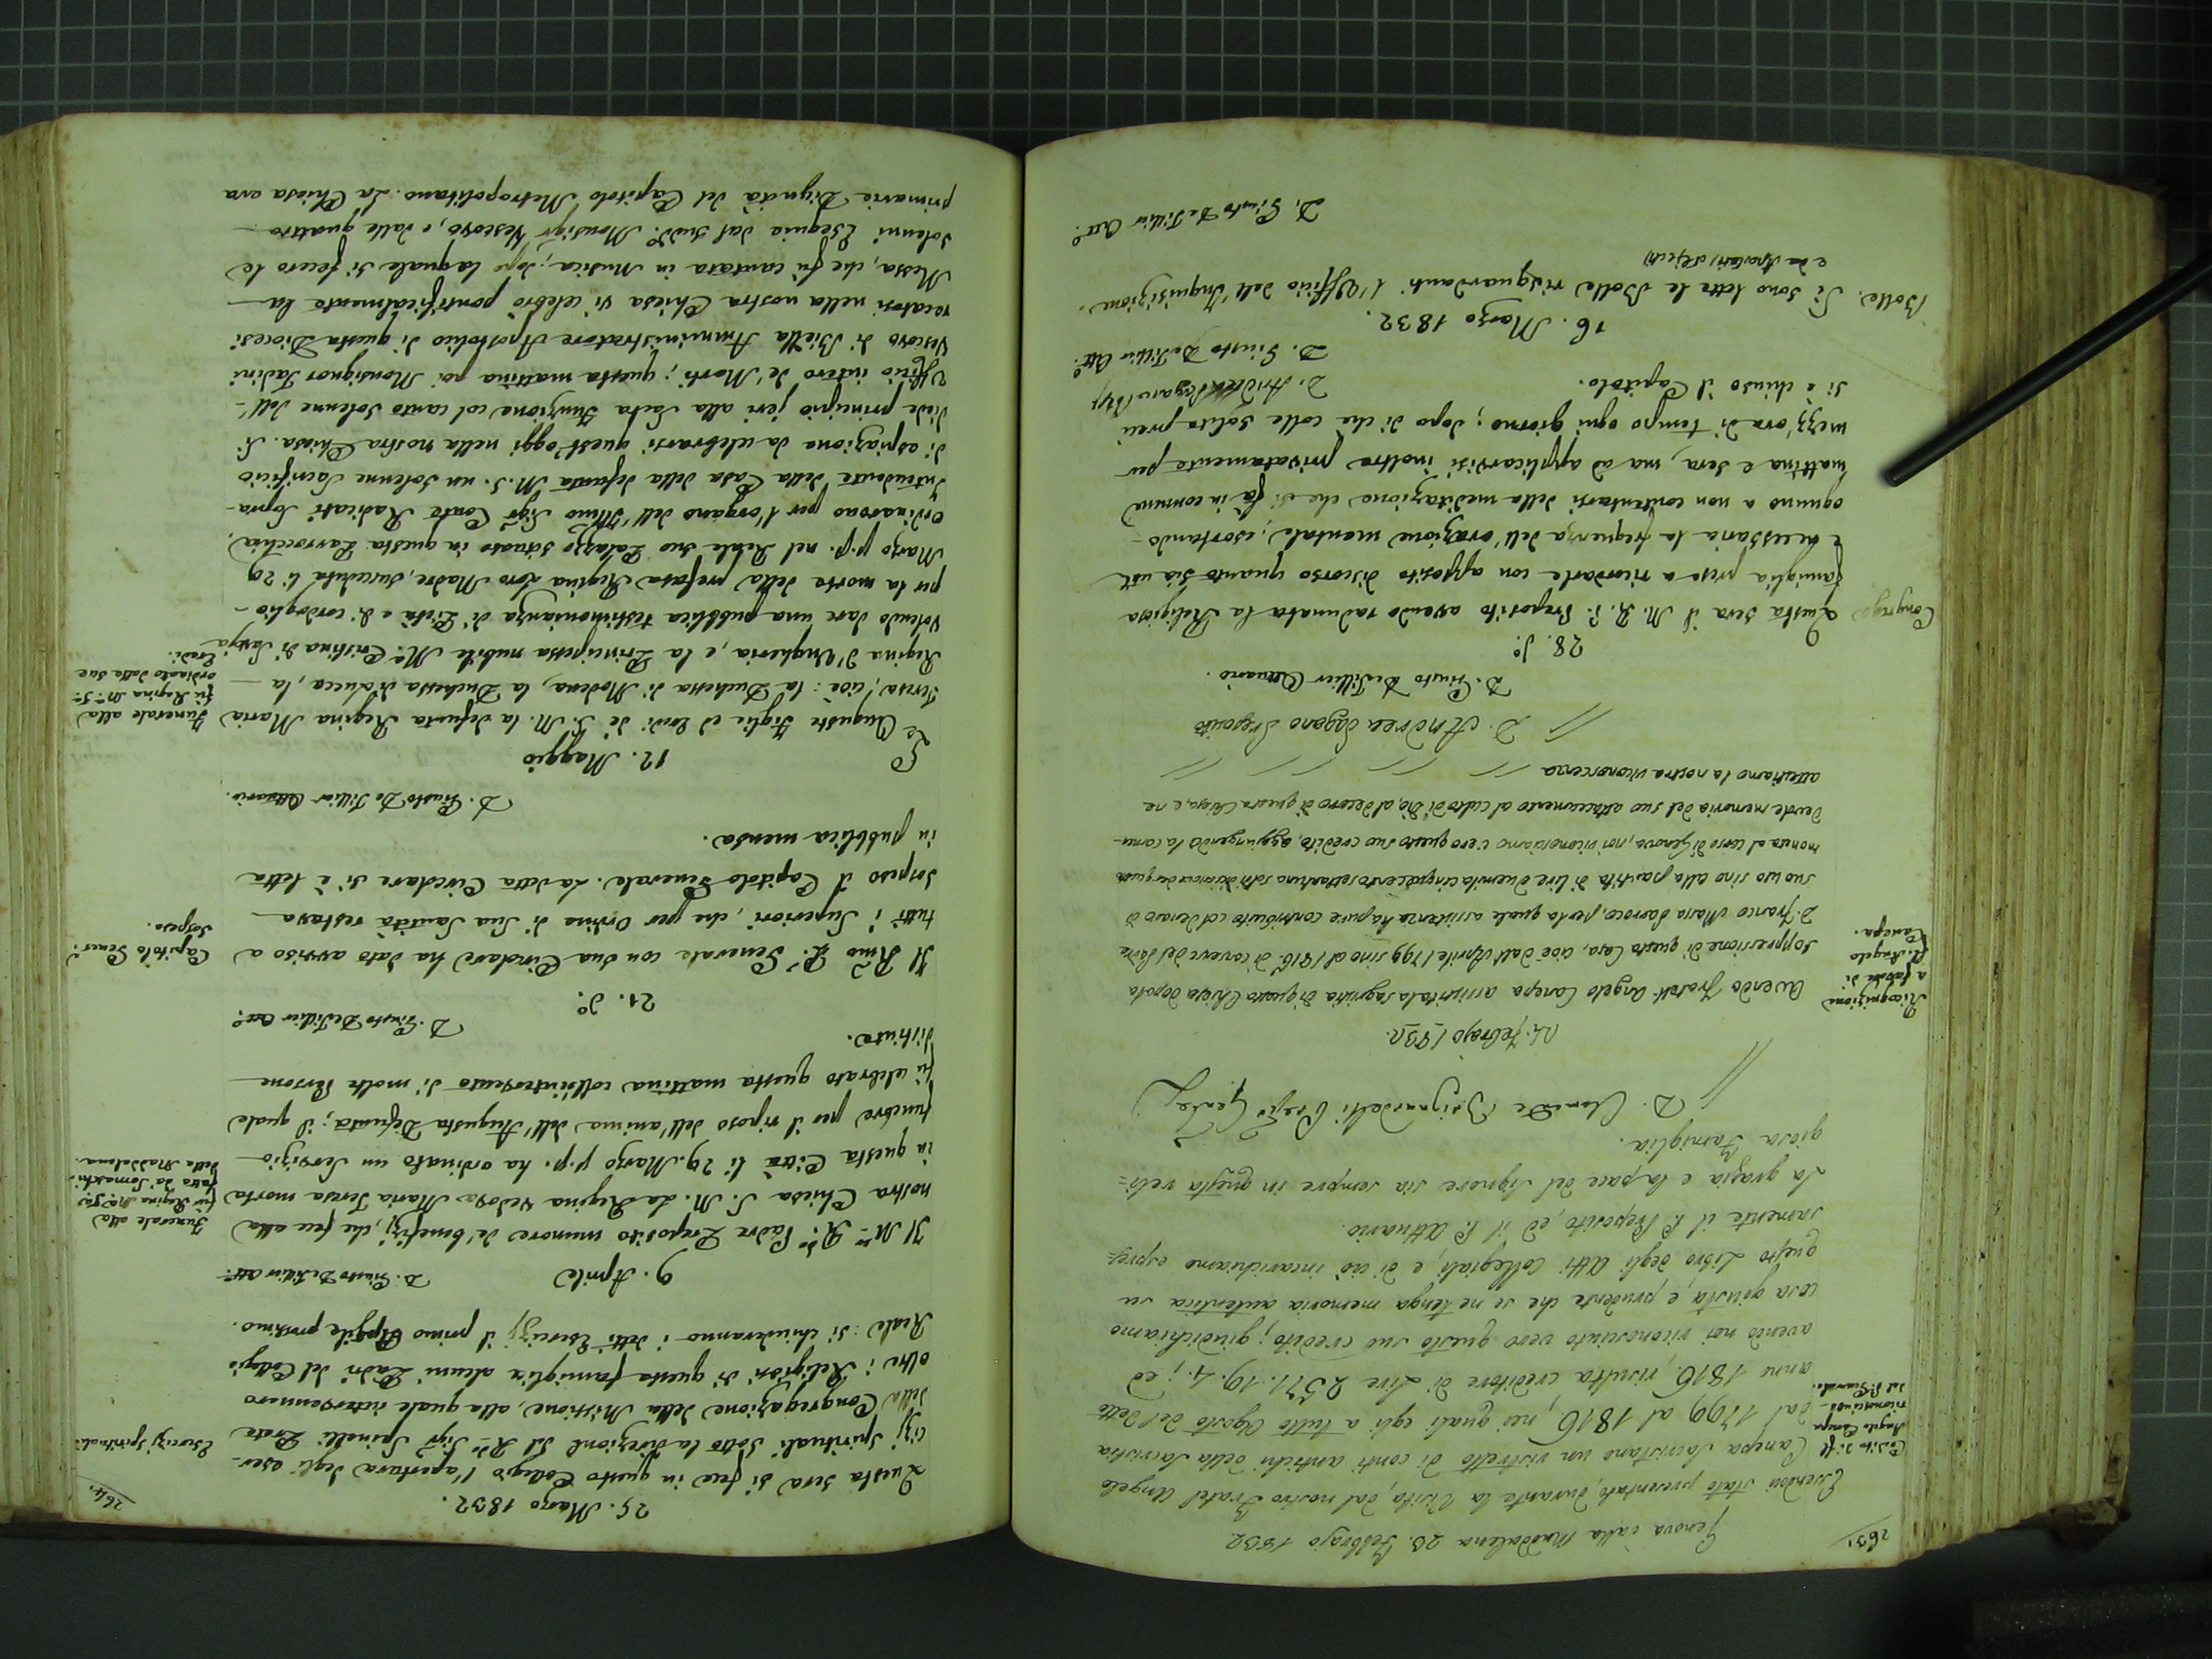 263.
Genova dalla Maddalena 23. Febbrajo 1832
Essendo stato presentato, durante la Visita, dal nostro Fratel Angelo
Canepa Sacristano un ristretto di conti antichi della Sacristia
dal 1799 al 1816, nei quali egli a tutto Agosto del detto
anno 1816. risulta creditore di Lire 2571.19.4.; ed
avendo noi riconosciuto vero questo suo credito; giudichiamo
cosa giusta, e prudente che se ne tenga memoria autentica su
questo Libro degli Atti Collegiali, e di ciò incarichiamo espres=
samente il P. Preposito, ed il P. Attuario.
La grazia e la pace del Signore sia sempre in questa reli=
giosa Famiglia.
// D. Clemente Brignardelli Prep. Genle
Credito di Fr.
Angelo Canepa
riconosciuto
dal P. Generale.
24. Febrajo 1832.
Avendo Fratell. Angelo Canepa assistita la sagristia di questa Chiesa dopo la
soppressione di questa Casa, cioè dall'Aprile 1799 sino al 1816. di conserva del Padre
D. Franco Maria Parroco, per la quale assistenza ha pure contribuito col denaro di
suo uso sino alla partita di lire duemila cinquecento settantuna soldi diecinove den. quattro
moneta al corso di Genova, noi riconosciamo vero questo suo credito, aggiungendo la comen-
devole memoria del suo attaccamento al culto di Dio, al decoro di questa Chiesa, e ne
attestiamo la nostra riconoscenza // // // // //
// D. Andrea Pagano Preposito
D. Giusto DeTillier Attuario.
Ricognizione
a favore di
Fr. Angelo
Canepa.
28. do.
Questa sera il M. R. P. Preposito avendo radunata la Religiosa
famiglia prese a ricordarle con apposito discorso quanto sia utile
e necessaria la frequenza dell'orazione mentale; esortando-
ognuno a non contentarsi della meditazione che si fà in comune
mattina e sera, ma ad applicarvisi inoltre privatamente per
mezz'ora di tempo ogni giorno; dopo di che colle solite preci
si è chiuso il Capitolo.
D. Andrea Pagano Prep.
D. Giusto DeTillier Atto.
16. Marzo 1832.
Bolle. Si sono lette le Bolle risguardanti l'Uffizio dell'Inquisizione.
e da Apostati, ed ejecti
D. Giusto DeTillier Atto.
264.
25. Marzo 1832.
Questa sera si fece in questo Collegio l'apertura degli eser-
cizj spirituali sotto la direzione del R.do Sigr Spinelli Prete
della Congregazione della Missione, alla quale intervennero
oltre i Religiosi di questa famiglia alcuni Padri del Collegio
Reale: si chiuderanno i detti Esercizj il primo Aprile prossimo.
Esercizj spirituali.
9. Aprile D. Giusto DeTillier Atto.
Il M. R.do Padre Preposito memore de' benefizj, che fece alla
nostra Chiesa S. M. La Regina vedova Maria Teresa morta
in questa Città li 29. Marzo p.p. ha ordinato un servizio
funebre per il riposo dell'anima dell'Augusta Defunta; il quale
fù celebrato questa mattina coll'intervento di molte Persone
distinte.
Funerale alla
fù Regina Ma. Ta.
fatto dai Somaschi
della Maddalena.
D. Giusto DeTillier Atto.
21. do.
Il Rmo P. Generale con sua Circolare ha dato avviso a
tutti i Superiori, che per Ordine di Sua Santità restava
sospeso il Capitolo Generale. La detta Circolare si è letta
in pubblica mensa.
Capitolo Gener.
sospeso.
D. Giusto De Tillier Attuario.
12. Maggio
Le Auguste Figlie ed Eredi di S. M. la defunta Regina Maria
Teresa; cioè: la Duchessa di Modena, la Duchessa di Lucca, la
Regina d'Ungheria, e la Principessa nubile Ma. Cristina di Savoja
volendo dare una pubblica testimonianza di Pietà e di cordoglio
per la morte della prefata Regina loro Madre, succeduta li 29
Marzo p.p. nel Reale suo Palazzo situato in questa Parrocchia,
ordinarono per l'organo dell'Illmo Sigr Conte Radicati Sopra-
Intendente della Casa della defunta M. S. un solenne Sacrificio
di espiazione da celebrarsi quest'oggi nella nostra Chiesa. Si
diede principio jeri alla sacra Funzione col canto solenne dell'-
Uffizio intero de' Morti; questa mattina poi Monsignor Tadini
Vescovo di Biella Amministratore Apostolico di questa Diocesi
recatosi nella nostra Chiesa vi celebrò pontificalmente la
Messa, che fù cantata in Musica; dopo la quale si fecero le
solenni Esequie dal sudd.o Monsigr Vescovo, e dalle quattro
primarie Dignità del Capitolo Metropolitano. La Chiesa era
Funerale alla
fù Regina Ma. Ta.
ordinato dalle sue
Eredi.